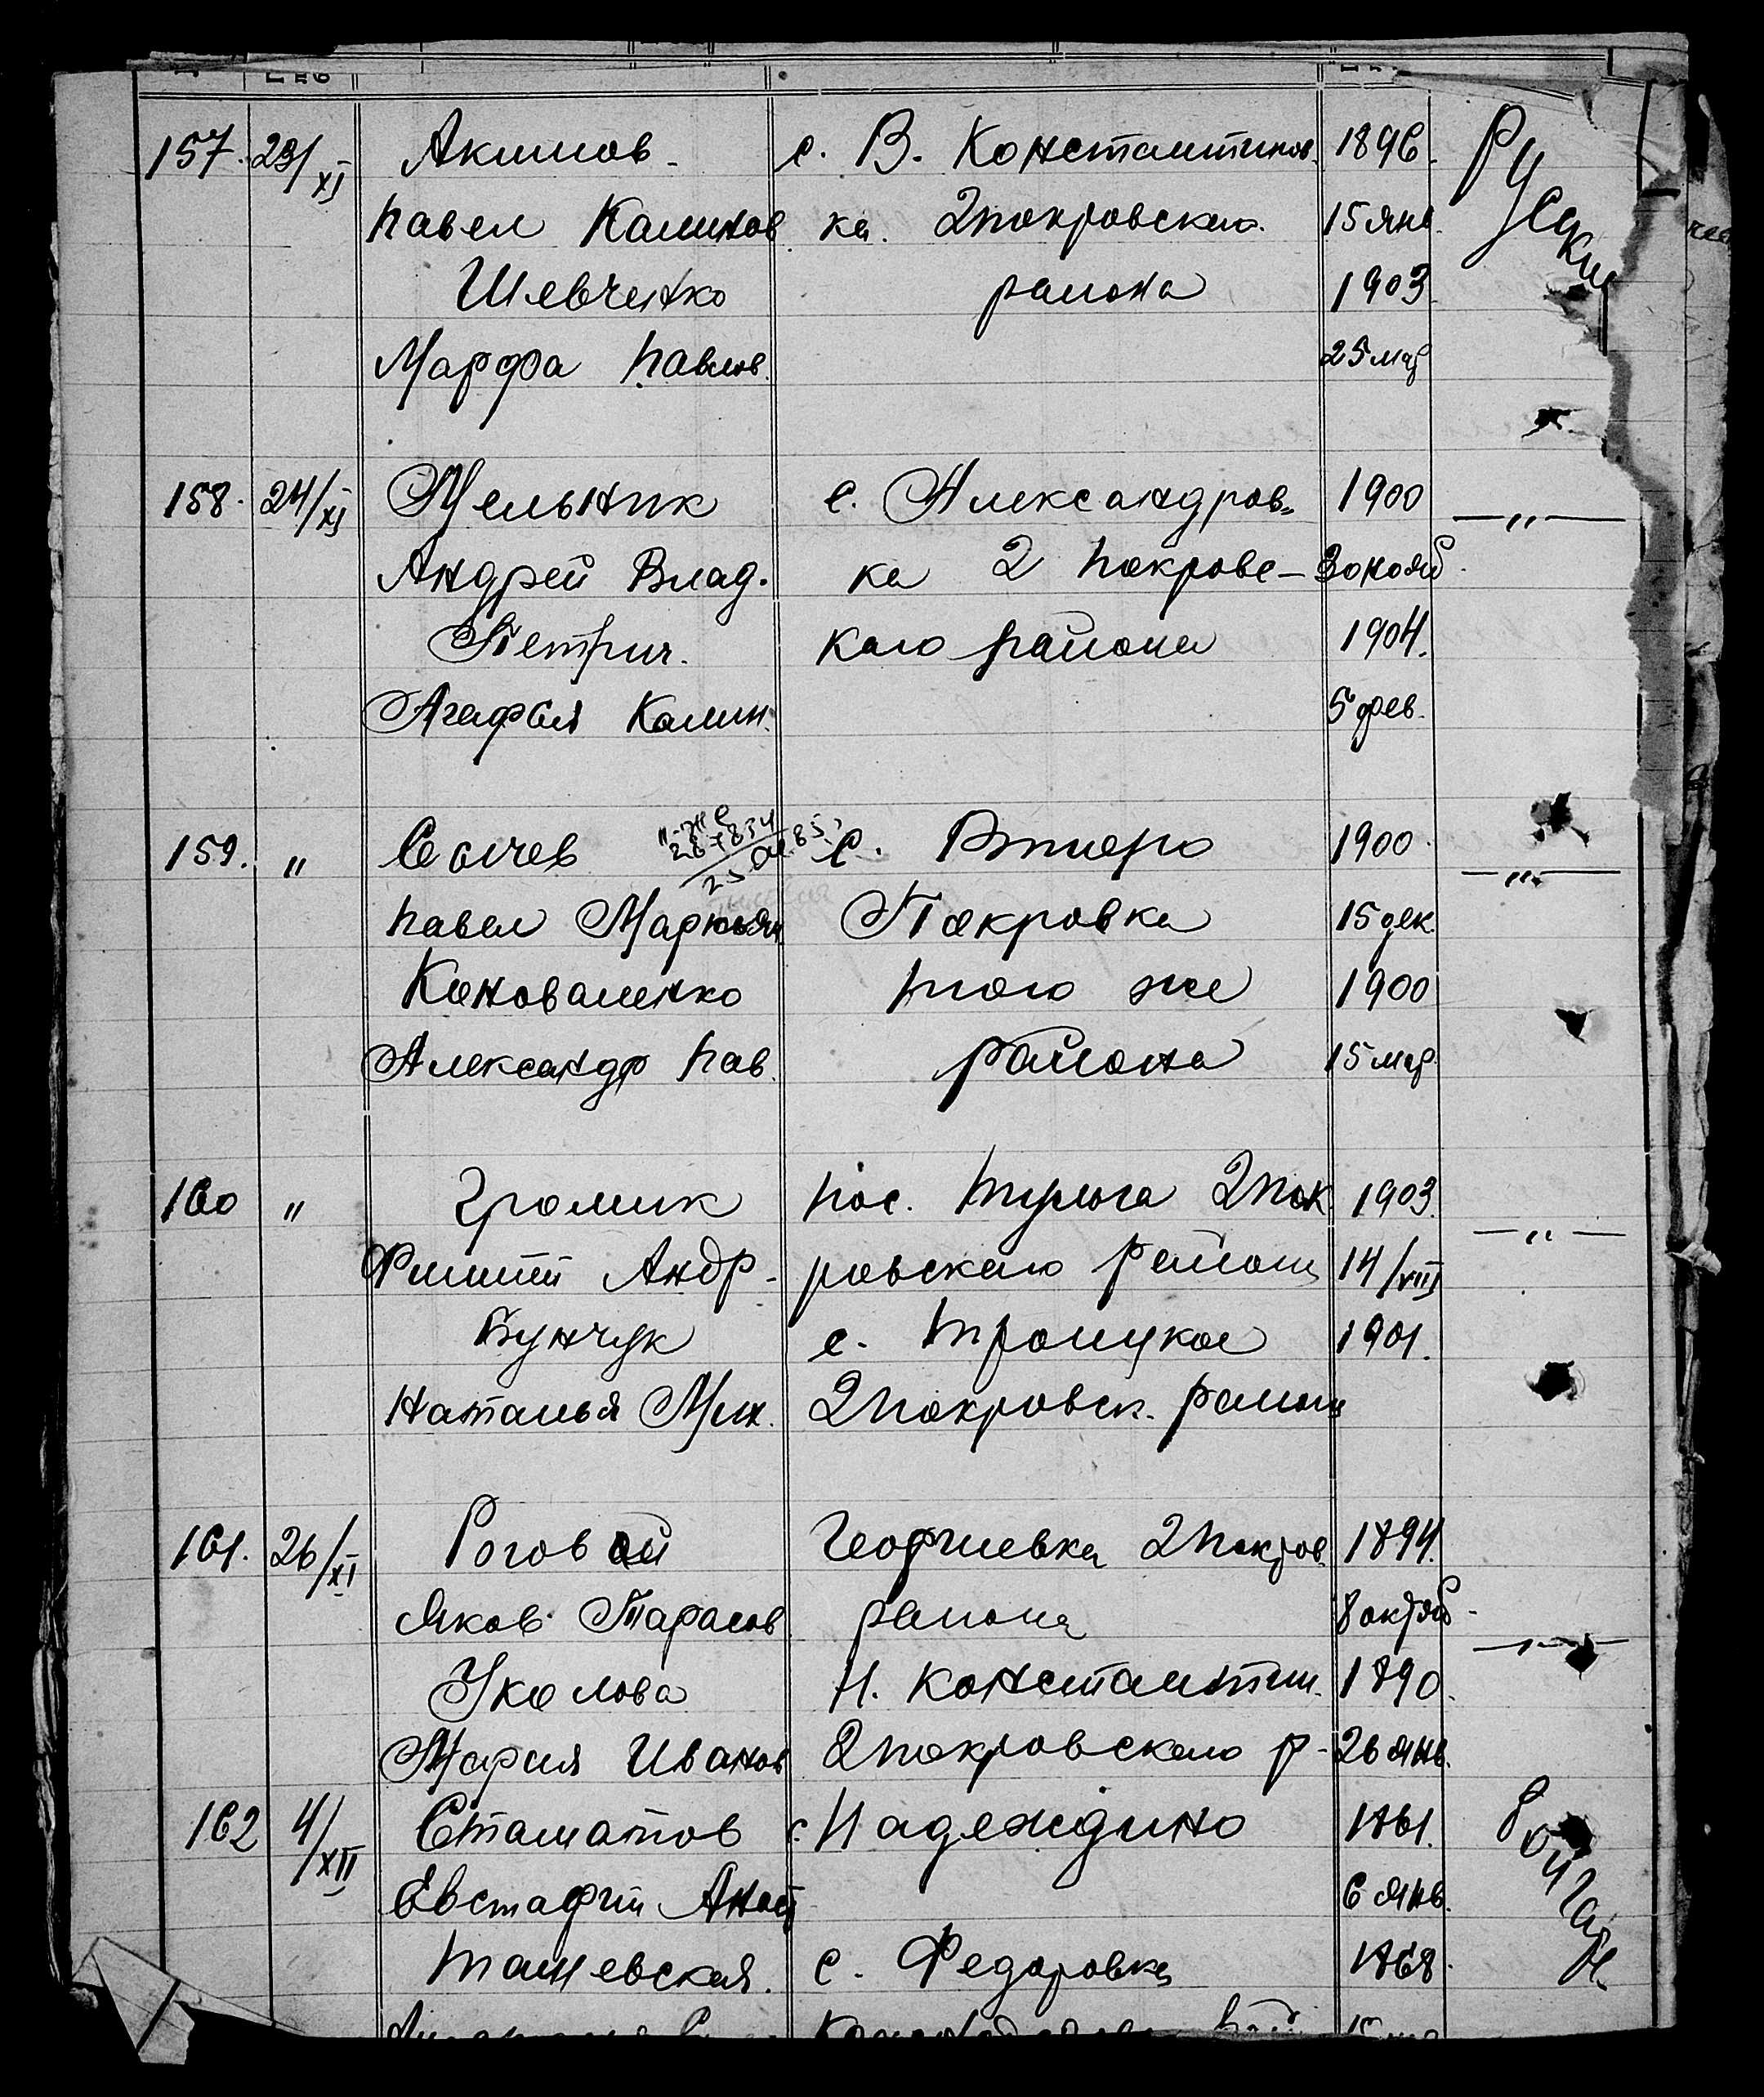 157. 23/XI Акимов - с. В. Константинов- 1896. Руские
Павел Калинов. ка. 2покровского 15 янв.
Шевченко района 1903
Марфа Павлов. 25 мар
158. 24/XI Мельник с. Александров- 1900 — " —
Андрей Влад. ка 2 Покровс- 30 нояб.
Петрич. кого района 1904.
Агафия Калин. 5 фев.
159. " Сычев с. Второ 1900 — " —
267834
25.01.85
Павел Маркьян. Покровка 15 дек.
Коноваленко того же 1900
Александр Пав. района 15 мар.
160 " Громик пос. 2пок 1903. — " —
Филипп Андр- ровского района 14/VIII
Бунчук с. Троицкое 1901.
Наталья Мих. 2покровск. района
161. 26/XI Роговой Георгиевка 2покров. 1894.
Яков Тарасов района 8 октяб. — " —
Уколова Н. Константин. 1890.
Мария Иванов 2покровского р- 26 янв.
162 4/XII Стаматов с. Надеждино 1861.
Евстафий 6 янв.
с. Федоровка 1868.